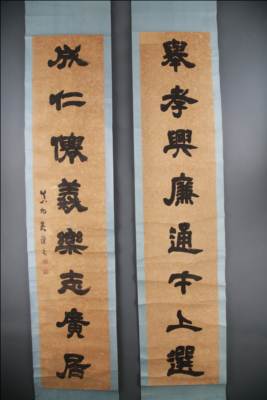 舉孝興廉通中上選
成仁傑義樂志廣居